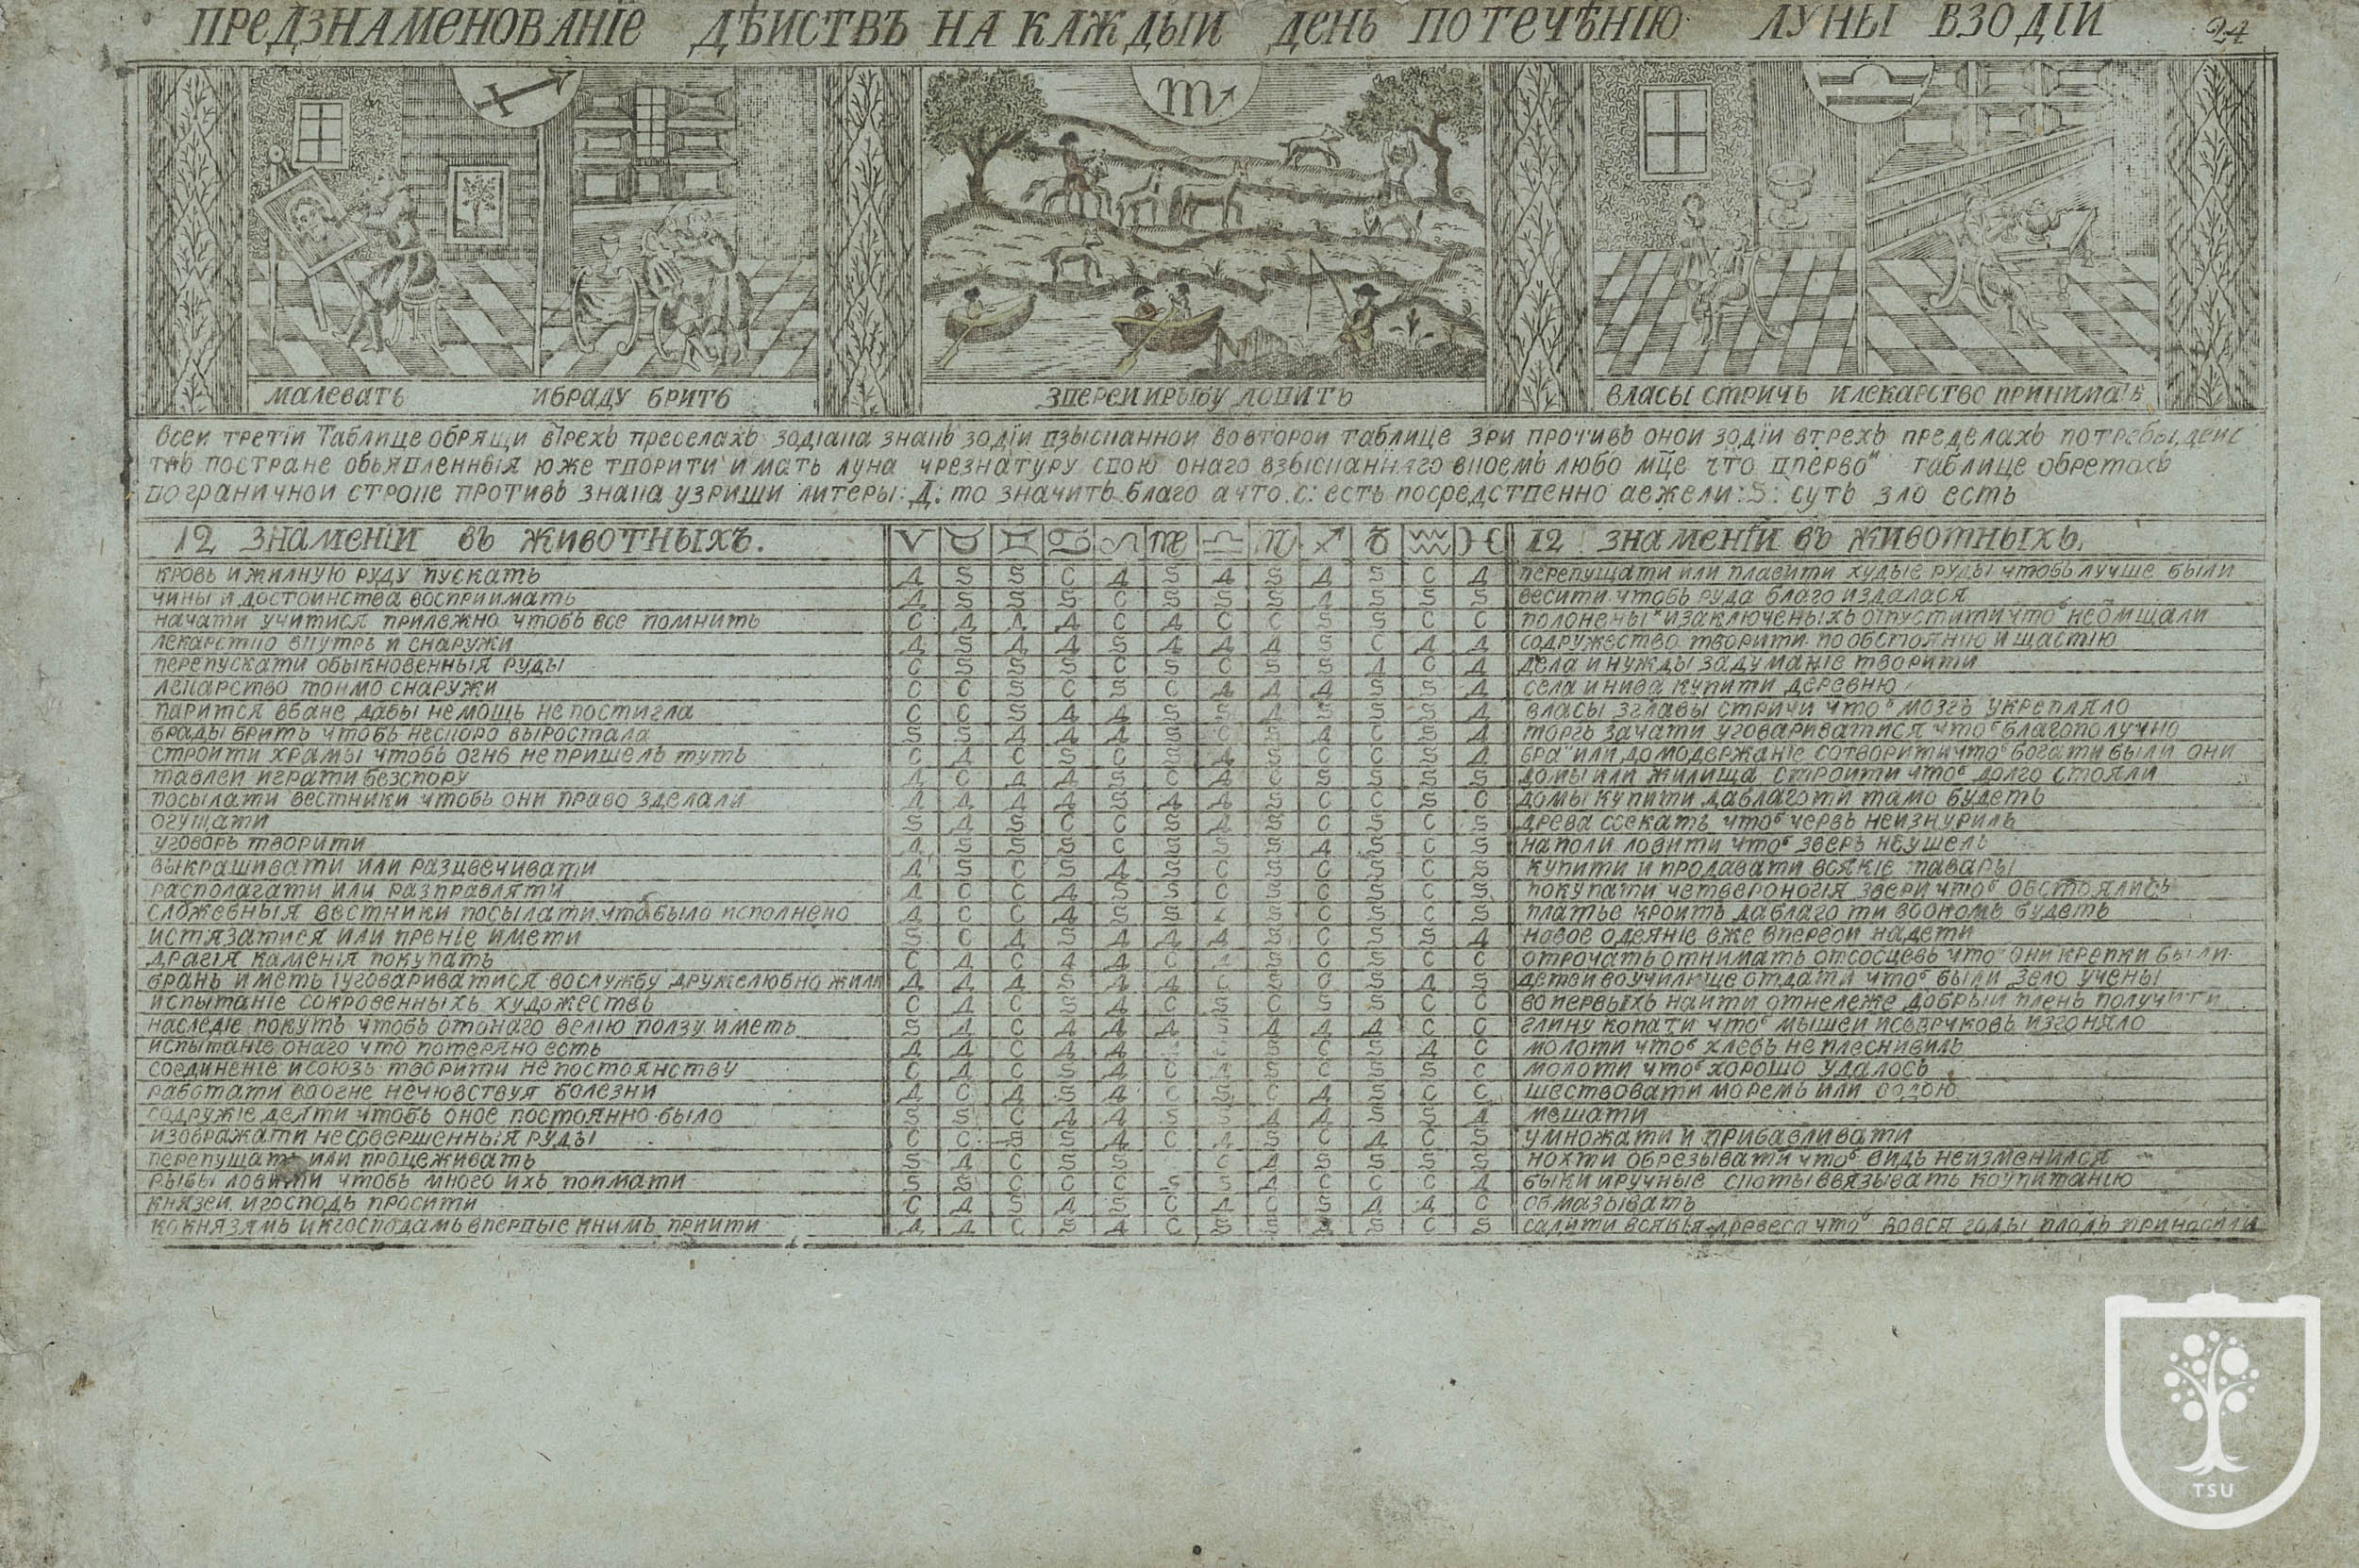 ПРЕДЗНАМЕНОВАНІЕ ДѢИСТВЪ НА КАЖДЫИ ДЕНЬ ПО ТЕЧѢНІЮ ЛУНЫ ВЗОДІИ 24
малевать ибраду брить
зверей ирыбу ловить
власы стричь илекарство принимать
всеи третіи таблице обрящи втрехъ пределахъ зодіака знакъ зодіи взысканнои вовторои таблице зри противъ онои зодіи втрехъ пределахъ потребы деис
твъ постране объявленныя юже творити имать луна чрезнатуру свою онаго взысканнаго вкоемъ любо мце что вперво таблице обретохъ
пограничнои строке противъ знака узриши литеры: Д: то значитъ благо ачто. с: есть посредственно аежели: S: суть зло есть
12 знаменіи въ животныхъ. ♈ ♉ ♊ ♋ ♌ ♍ ♎ ♏ ♐ ♑ ♒ ♓ 12 знаменіи въ животныхъ.
кровь ижилную руду пускать Д S S С Д S Д S Д S С Д перепущати или плавити худые руды чтобъ лучше были
чины и достоинства восприимать Д S S S С S S S Д S S S весити чтобъ руда благо издалася
начати учитися прилежно чтобъ все помнить С Д Д Д С Д С С S S С С полонены изаключеныхъ отпустити чтоб неомщали
лекарство внутрь и снаружи Д S Д Д S Д Д Д S С Д Д содружество творити пообстоянію и щастію
перепускати обыкновенныя руды С S S S С S С S S Д С Д дела инужды задуманіе творити
лекарство токмо снаружи С С S С S С Д Д Д S S Д села инива купити деревню
парится вбане дабы немощь непостигла С С S Д Д S S Д S S S Д власы зглавы стричи чтоб мозгъ укрепляло
брады брить чтобъ нескоро выростала S S Д Д Д S С S Д С S Д торгъ зачати уговариватися чтоб благополучно
строити храмы чтобъ огнь непришелъ тутъ С Д С S С S Д S С С S Д бра или домодержаніе сотворити что богати были они
тавлеи играти безспору Д С Д Д S С Д С S S S S домы или жилища строити чтоб долго стояли
посылати вестники чтобъ они право зделали Д Д Д Д S Д Д S С С S С домы купити даблаготи тамо будетъ
огущати S Д S С С S Д S С S С S древа ссекать чтоб червь неизнурилъ
уговоръ творити Д S S S С S S S Д S С S наполи ловити чтоб зверь неушелъ
выкрашивати или разцвечивати Д S С S Д S С S С S С S купити и продавати всякіе тавары
располагати или разправляти Д С С Д S S С S С S С S покупати четвероногія звери чтоб обстоялись
служебныя вестники посылати чтоб было исполнено Д С С Д S S С S С S С S платье кроить даблаго ти воономъ будетъ
истязатися или преніе имети S С Д S Д Д Д S С S S Д новое одеяніе еже впервои надети
драгія каменія покупать С Д С Д Д С Д S С S С S отрочать отнимать отсосцевъ что они крепки были
брань иметь іуговариватися вослужбу дружелюбно жили Д Д Д S Д Д С S С S Д S детеи воучилище отдати чтоб были зело учены
испытаніе сокровенныхъ художествъ С Д С S Д С S С S S С С во первыхъ наити отнележе добрыи пленъ получити
наследіе покупъ чтобъ отонаго велію ползу иметь S Д С Д Д Д S Д Д Д С С глину копати чтоб мышеи исверчковъ изгоняло
испытаніе онаго что потеряно есть Д Д С Д Д S С S Д С молоти чтоб хлебъ неплеснивилъ
соединеніе исоюзъ творити непостоянству С Д С S Д С Д S С S S С молоти чтоб хорошо удалось
работати воогне нечювствуя болезни Д С Д S Д С S С Д S С С шествовати моремъ или водою
содружіе деяти чтобъ оное постоянно было S S С Д Д S S Д Д S S Д мешати
изображати несовершенныя руды С С S S Д С Д S С Д С S умножати и прибавливати
перепущать или процеживать S Д С S S С Д S S S S нохти обрезывати чтоб видъ неизменился
рыбы ловити чтобъ много ихъ поимати S S С С С S S Д С С С Д быки иручные скоты ввязывать коупитанію
князеи игосподъ просити С Д S Д S С Д С S Д Д С обмазывать
ко княземъ икгосподамъ впервые книмъ приити Д Д С S Д С S S Д S С S садити всякия древеса чтоб вовся годы плодъ приносили
TSU